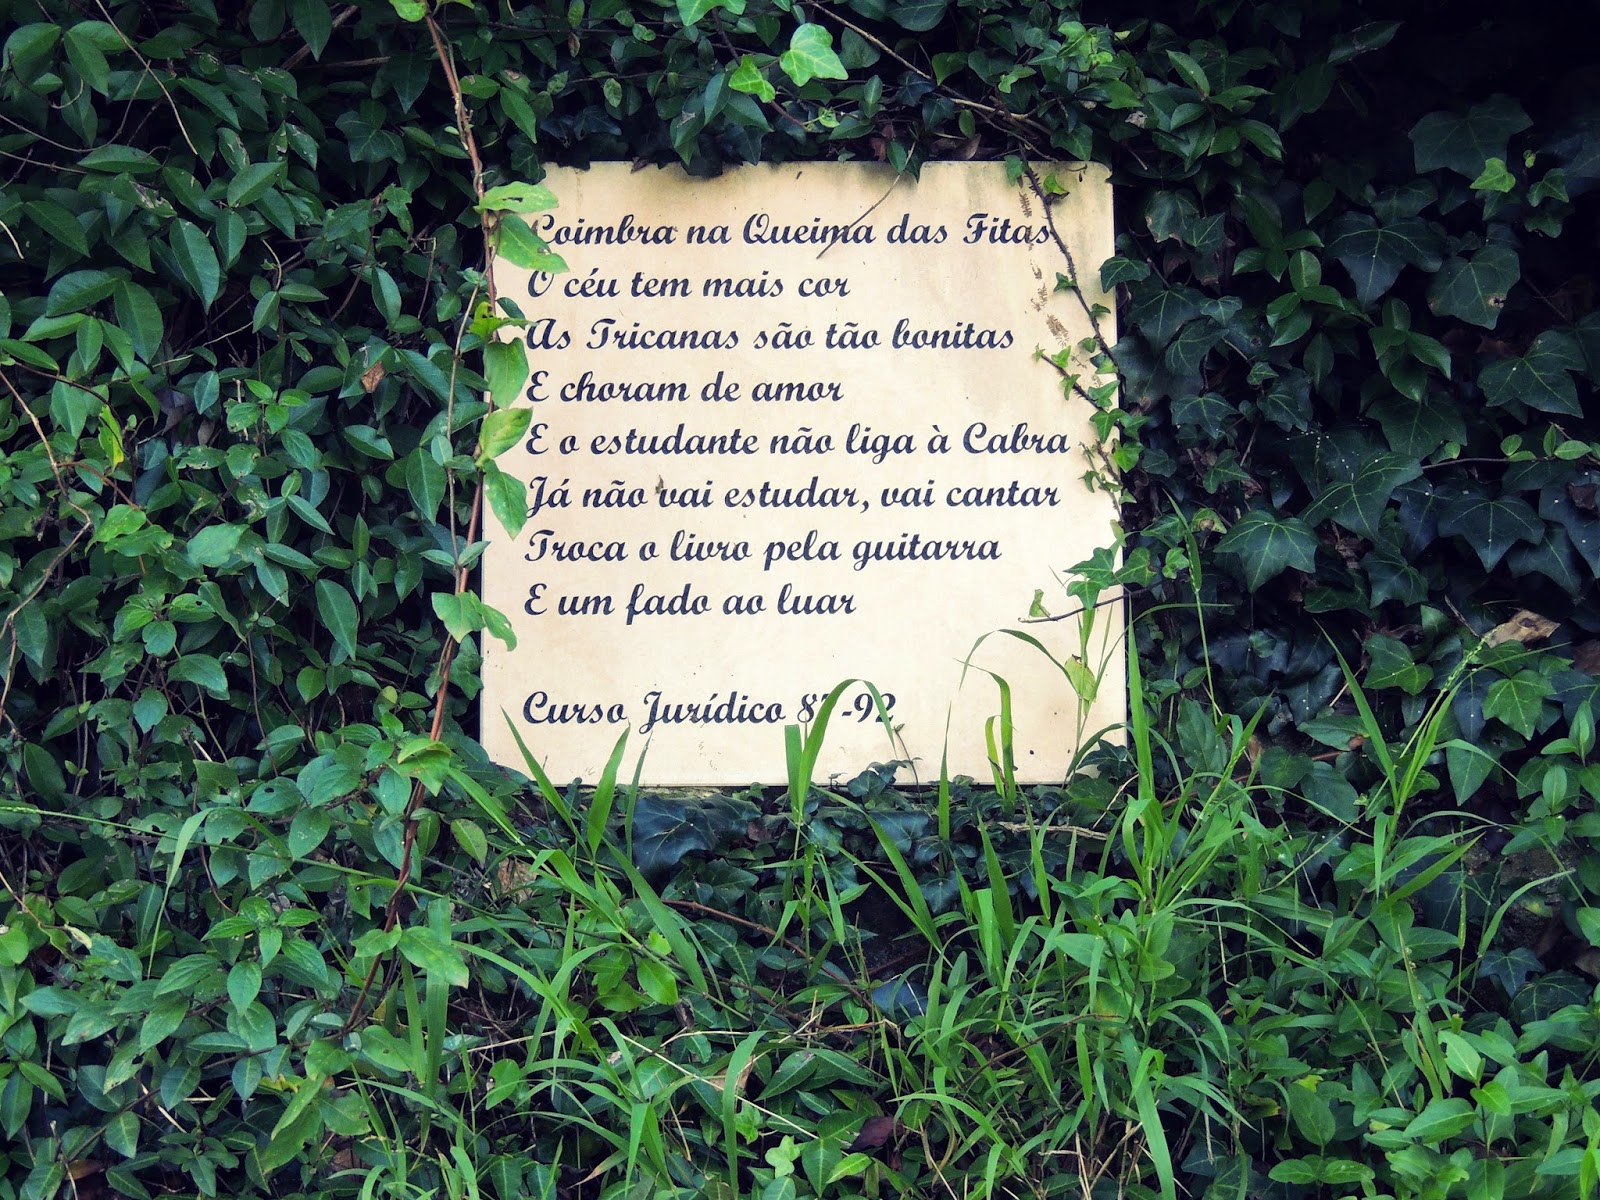 Coimbra na Queima das Fitas
O céu tem mais cor
As Tricanas são tão bonitas
E choram de amor
E o estudante não liga à Cabra
Já não vai estudar, vai cantar
Troca o livro pela guitarra
E um fado ao luar
Curso Jurídico 87-92